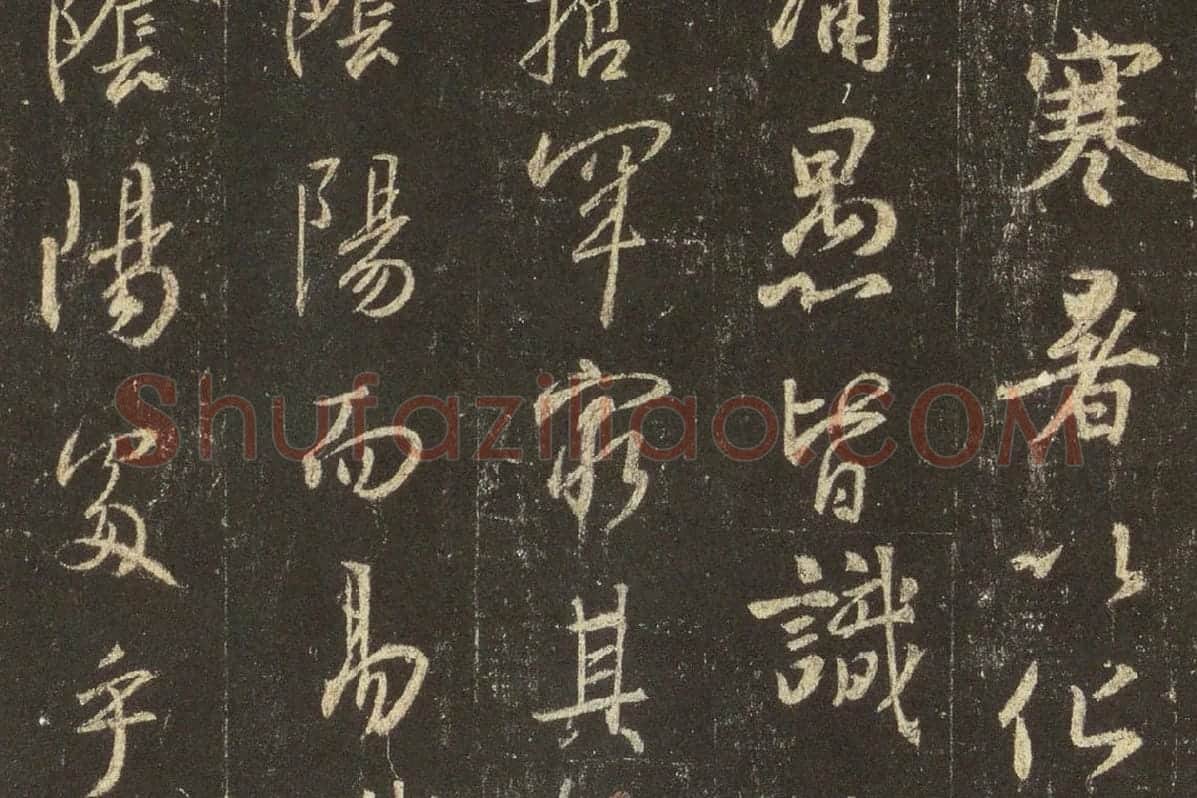 寒暑以化
庸愚皆識
哲罕窮其
陰陽而易
陰陽處乎
Shufaziliao.COM